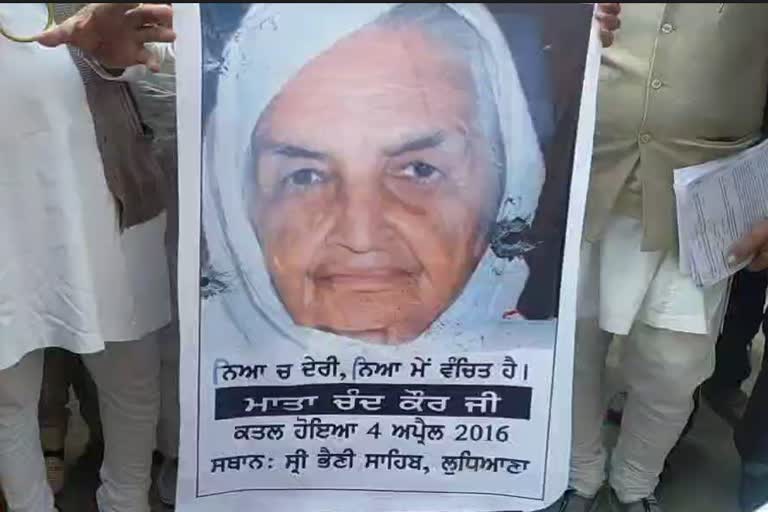 ਨਿਆ ਚ ਦੇਰੀ, ਨਿਆ ਮੇਂ ਵੰਚਿਤ ਹੈ।
ਮਾਤਾ ਚੰਦ ਕੌਰ ਜੀ
ਕਤਲ ਹੋਇਆ 4 ਅਪ੍ਰੈਲ 2016
ਸਥਾਨ: ਸ੍ਰੀ ਭੈਣੀ ਸਾਹਿਬ, ਲੁਧਿਆਣਾ